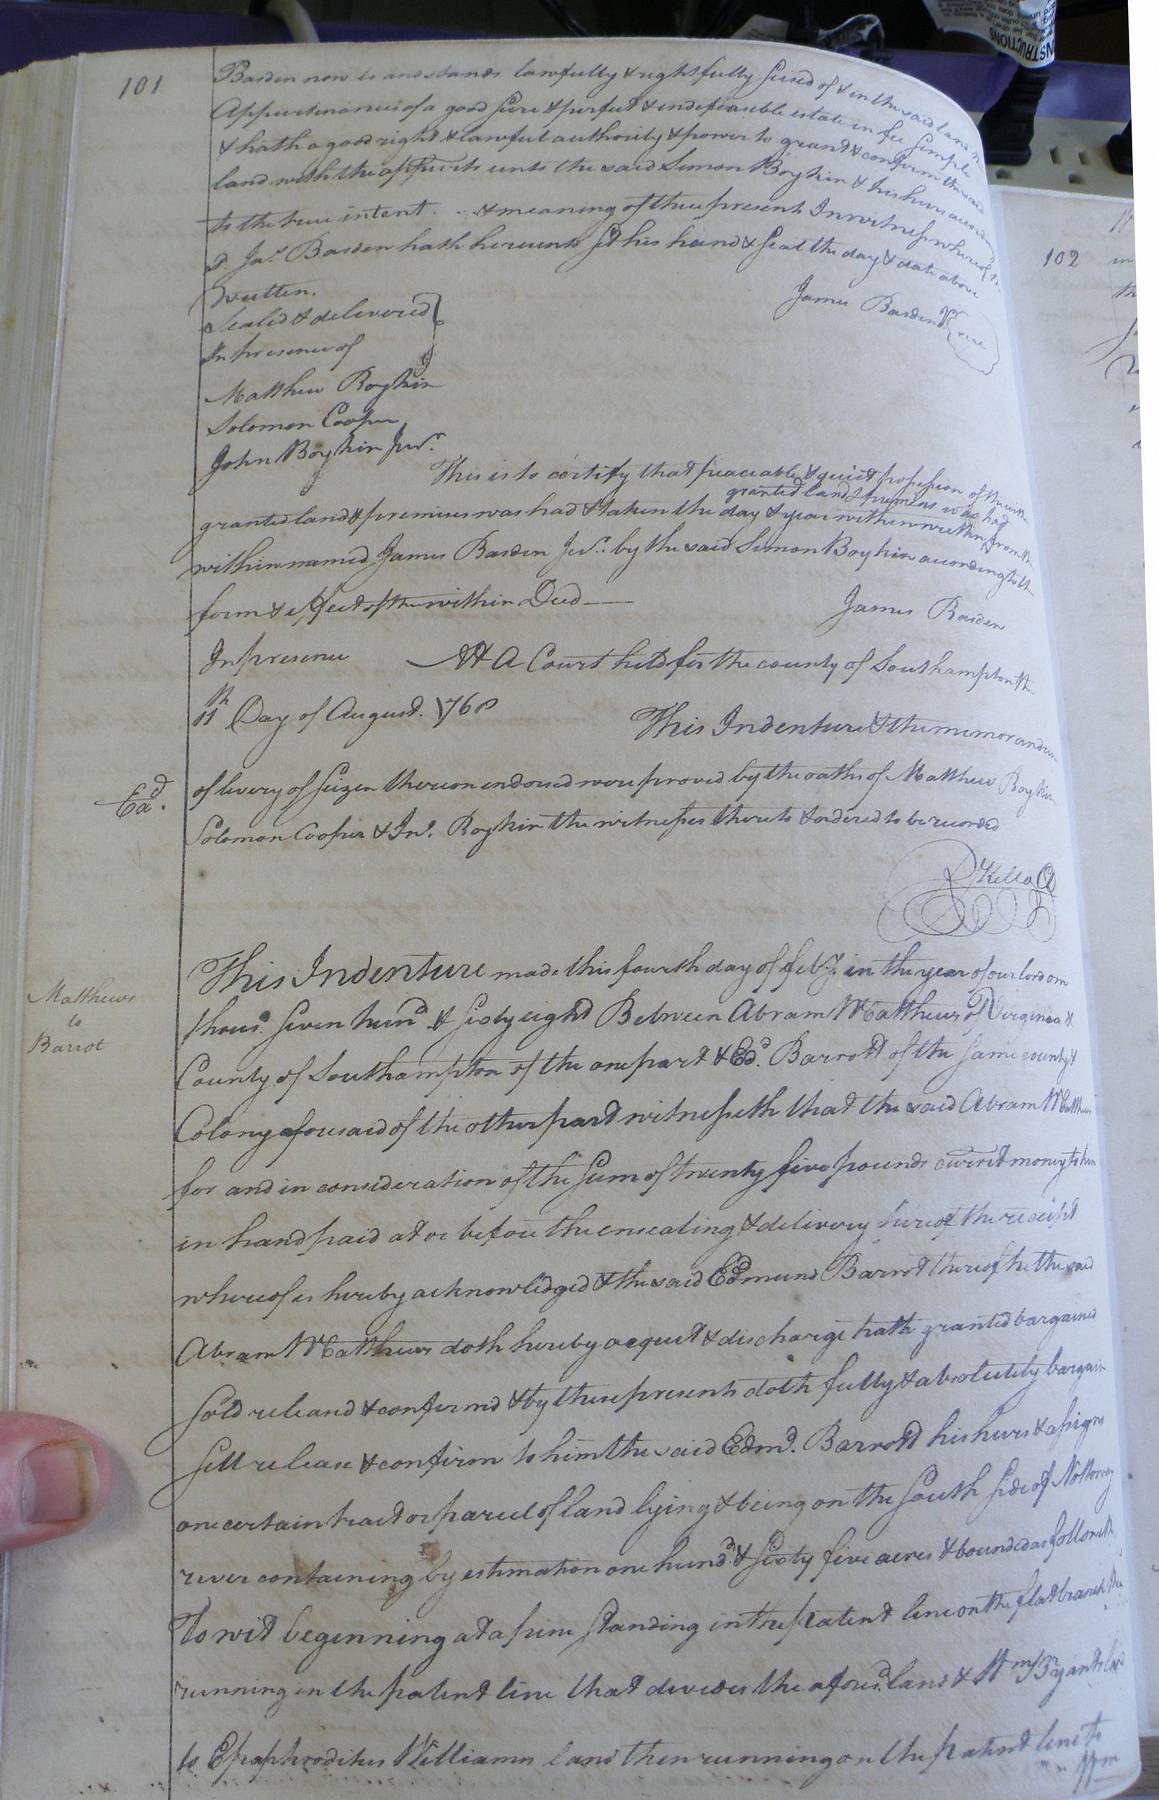 101
Barden now is and stands lawfully & rightfully seised of & in the said land &
Appurtenances of a good sure & perfect & indefeasible estate in fee simple
& hath a good right & lawful authority & power to grant & confirm the said
land with the appurts unto the said Simon Boykin & his heirs according
to the true intent . . & meaning of these presents In witness whereof the
sd. Jas. Barden hath hereunto set his hand & seal the day & date above
written.
James Barden Jr
Sealed & delivered
In presence of
Matthew Boykin
Solomon Cooper
John Boykin Junr.
This is to certify that peaceable & quiet possession of the within
granted land & premises was had
granted land & premises was had & taken the day & year within written from the
within named James Barden Jur. by the said Simon Boykin according to the
form & effect of the within Deed —
James Barden
In presence
At a Court held for the county of Southampton the
11th Day of August. 1768
This Indenture & the memorandum
Exd.
of livery of seizen thereon endorsed were proved by the oaths of Matthew Boykin
Solomon Cooper & Jno. Boykin the witnesses thereto & ordered to be recorded
R Kello
This Indenture made this fourth day of feby. in the year of our lord om
thous. seven hund. & sixty eight Between Abram Matthews of Virginia &
Matthews
to
Barrot
County of Southampton of the one part & Ed. Barrott of the same county &
Colony aforesaid of the other part witnesseth that the said Abram Matthews
for and in consideration of the sum of twenty five pounds current money to him
in hand paid at or before the ensealing & delivery hereof the receipt
whereof is hereby acknowledged & the said Edmund Barrot thereof he the said
Abram Matthews doth hereby acquet & discharge hath granted bargained
sold releasd & confirmd & by these presents doth fully & absolutely bargain
sell release & confirm to him the said Edmd. Barrott his heirs & assigns
one certain tract or parcel of land lying & being on the south side of Nottoway
river containing by estimation one hund. & sixty five acres & bounded as followeth
To wit beginning at a pine standing in the patent line on the flat branch
running on the patent line that devides the afores. land & Wm. Bryants land
to Epaphroditus Williams land then running on the patent line to
Wm
102